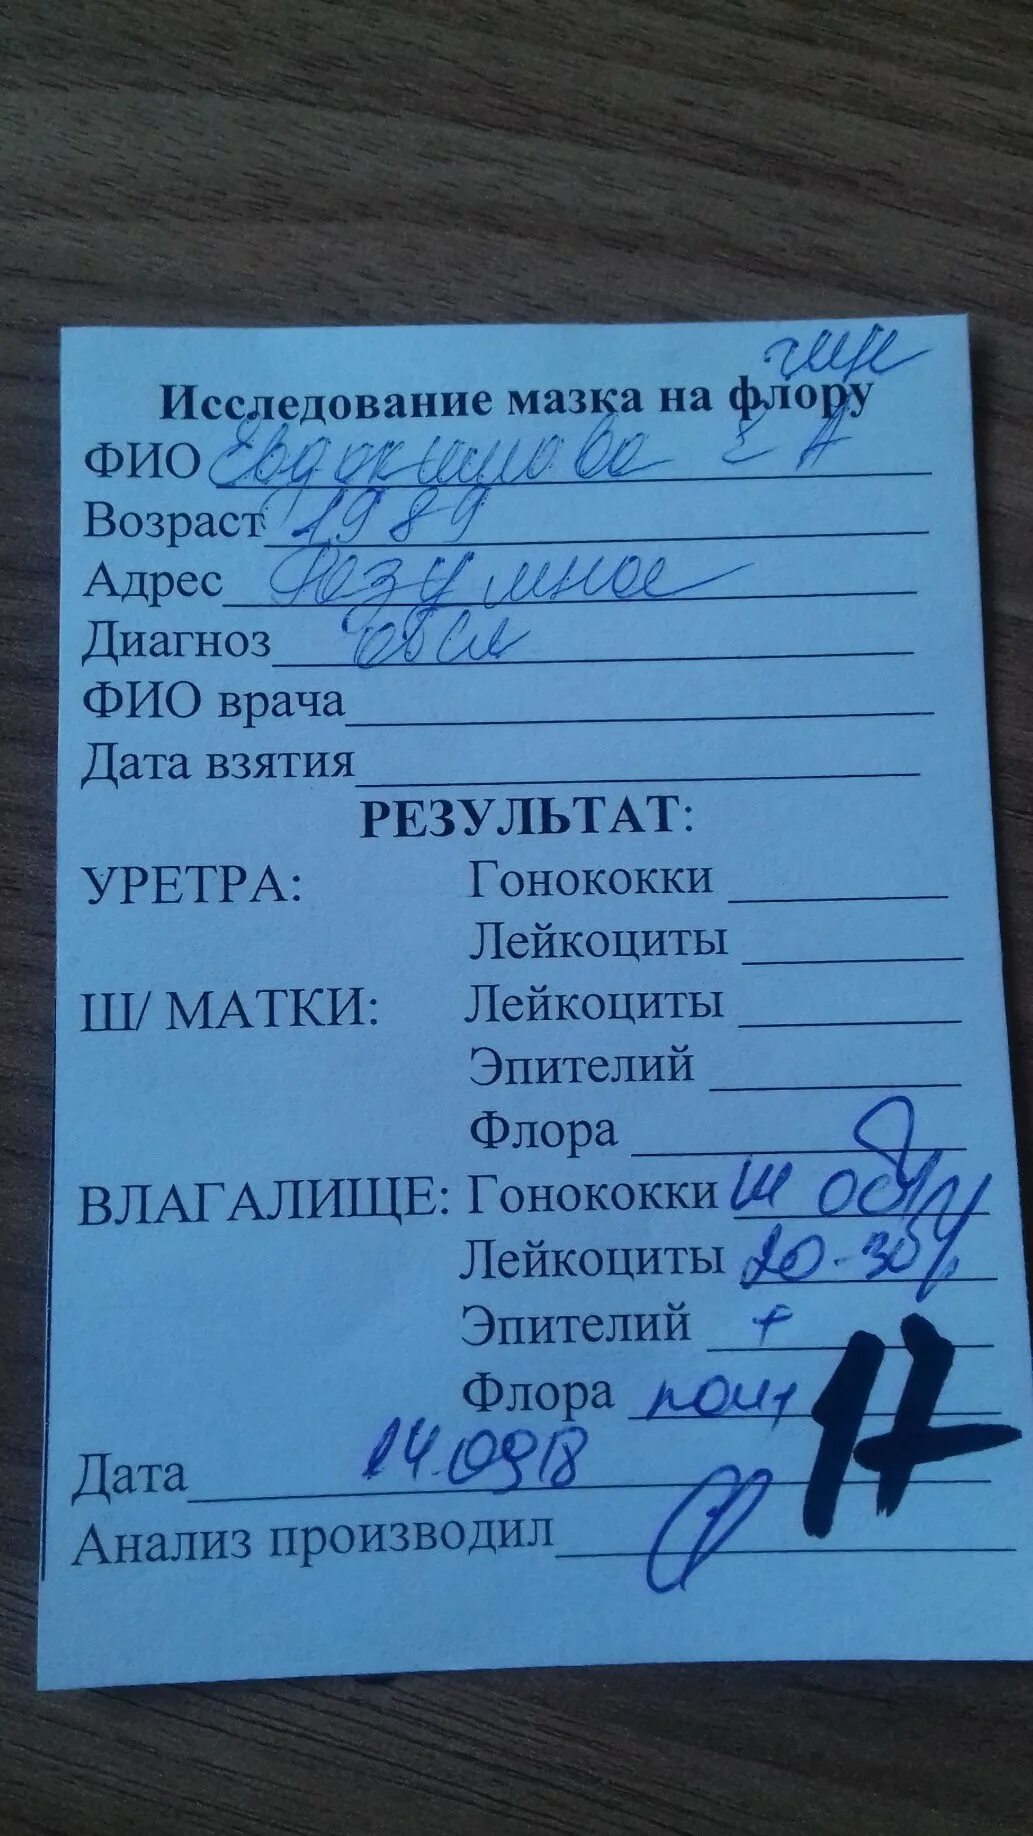 гин
Исследование мазка на флору
ФИО Евдокимова Е А
Возраст 1989
Адрес Разумное
Диагноз обсл
ФИО врача
Дата взятия
РЕЗУЛЬТАТ:
УРЕТРА: Гонококки
Лейкоциты
Ш/ МАТКИ: Лейкоциты
Эпителий
Флора
ВЛАГАЛИЩЕ: Гонококки
Лейкоциты 20-30
Эпителий +
Флора
Дата 14.0918
Анализ производил
17